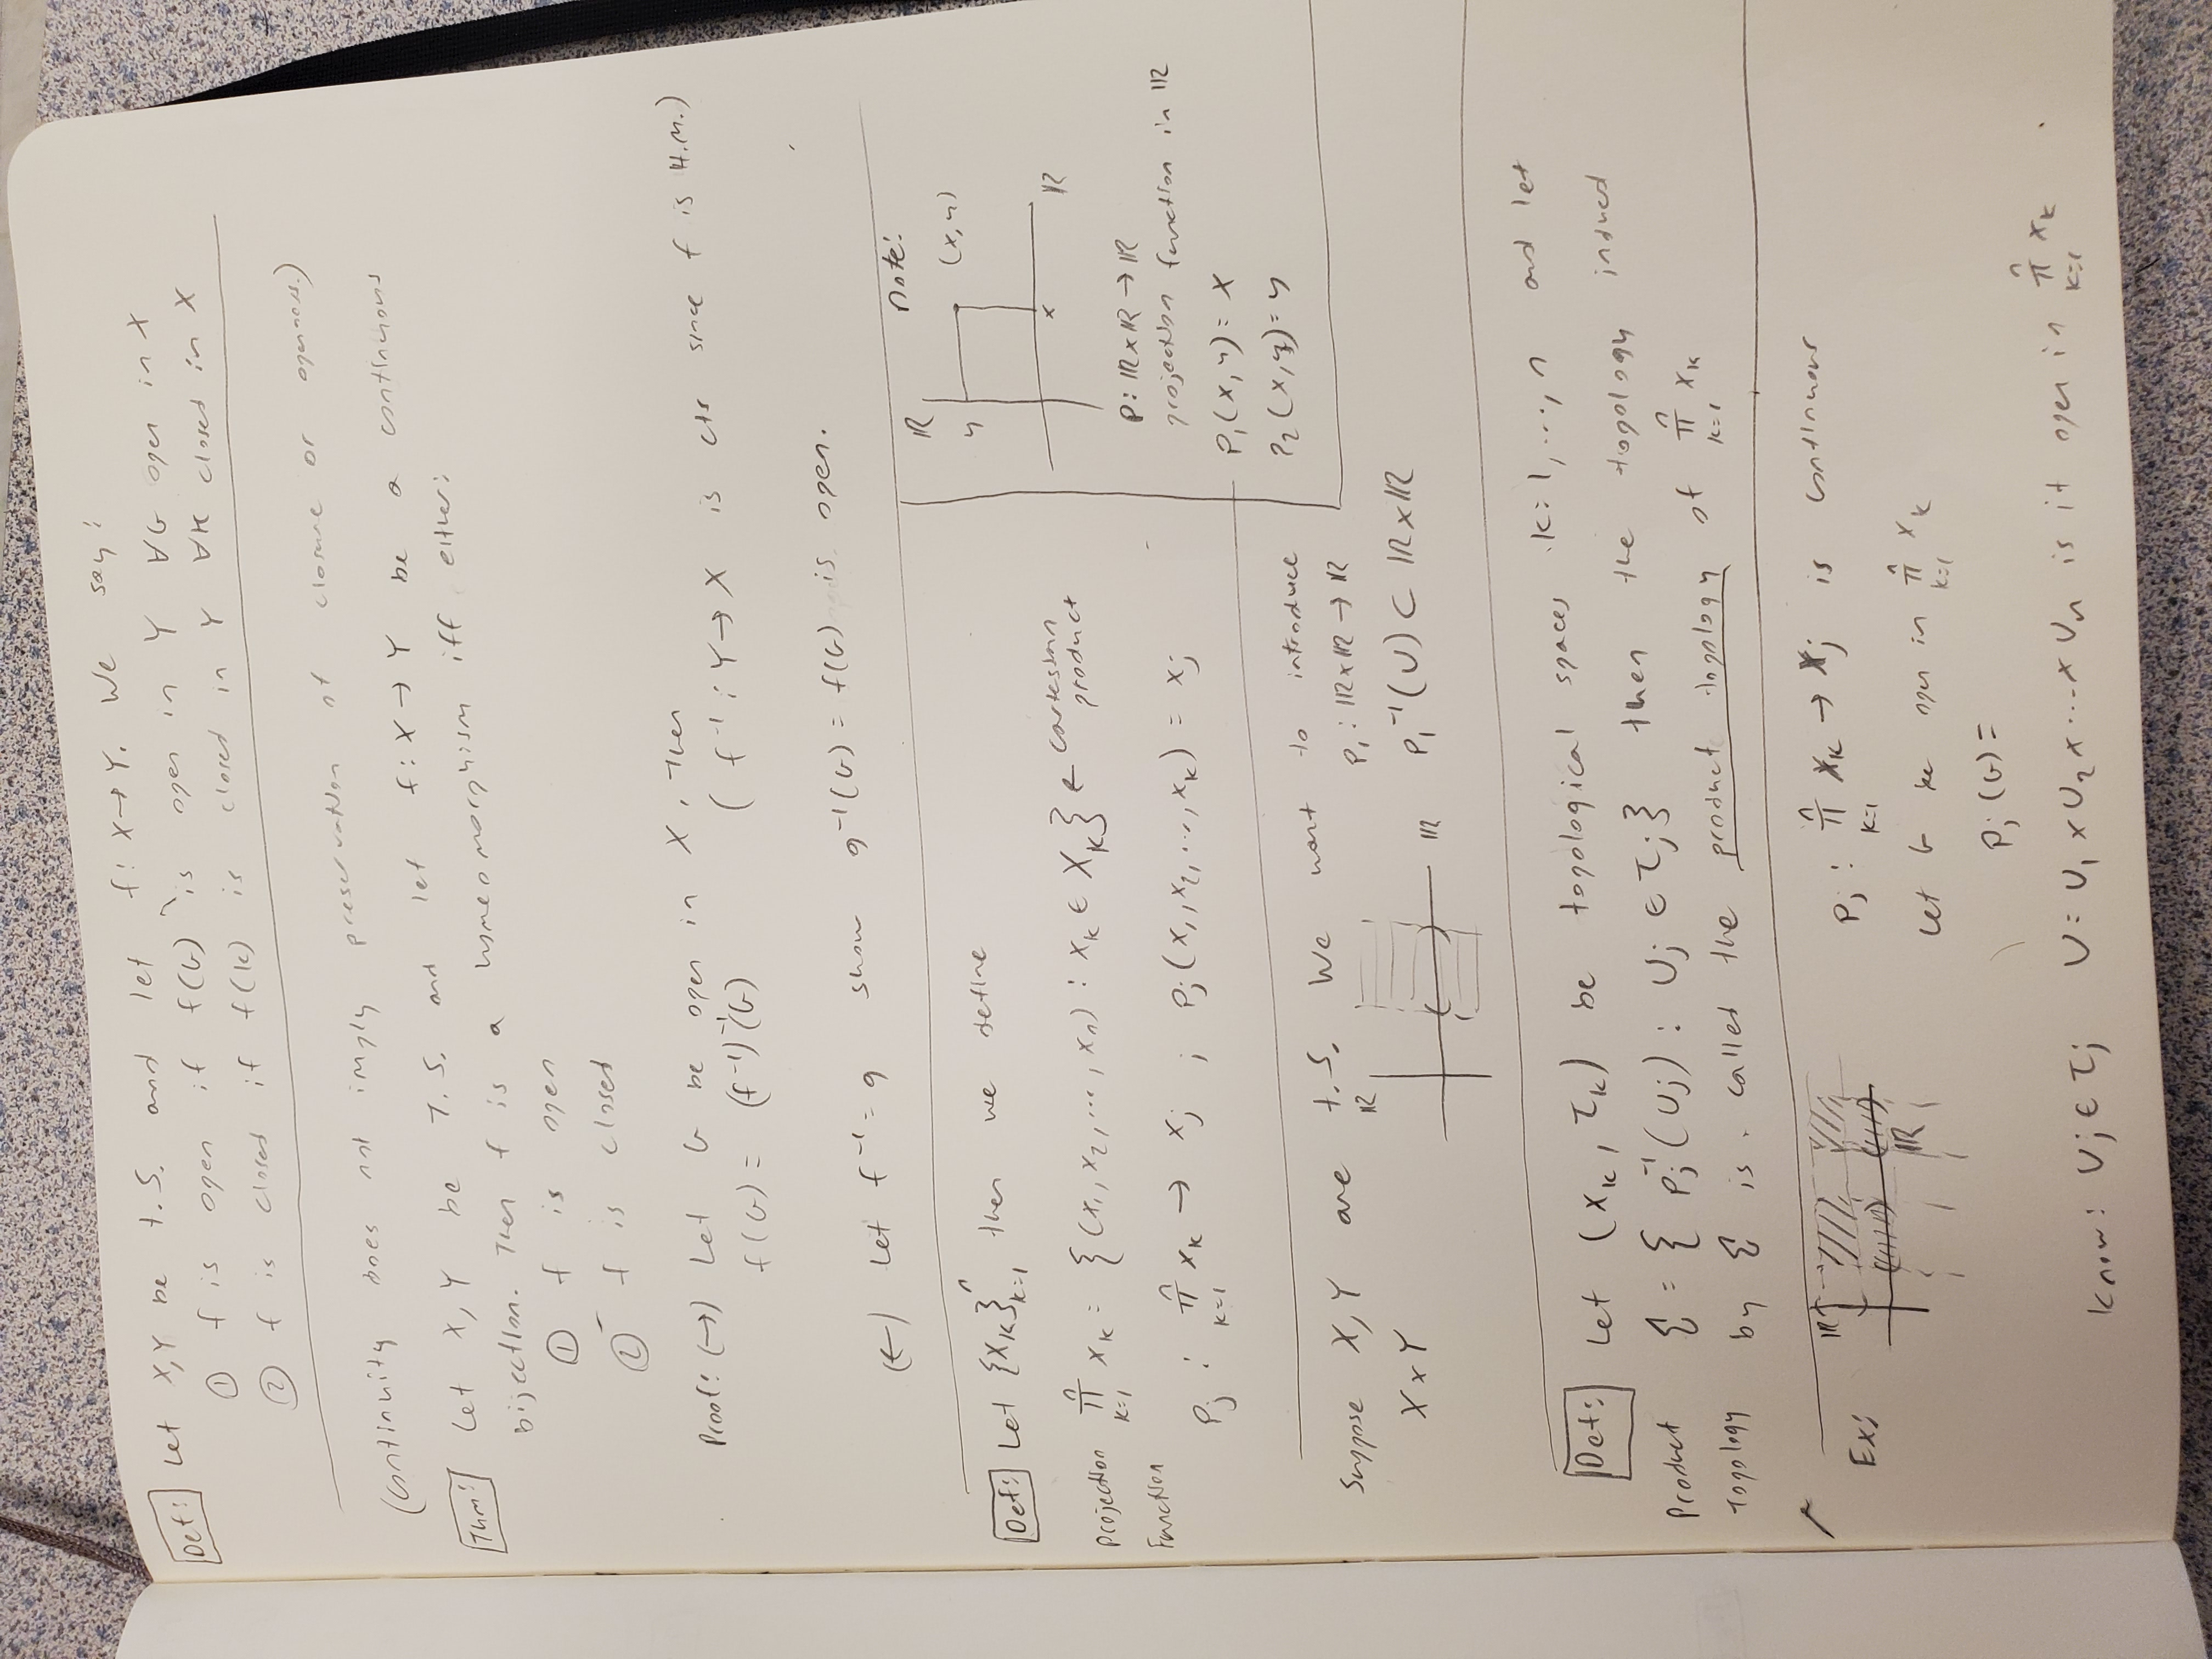 Def: Let X,Y be t.S. and let f: X→Y. We say:
① f is open if f(G) is open in Y ∀G open in X
② f is closed if f(k) is closed in Y ∀K closed in X
(continuity does not imply preservation of closure or openness.)
Thm: Let X, Y be T.S. and let f: X→Y be a continuous
bijection. Then f is a homeomorphism iff either:
① f is open
② f is closed
Proof: (→) Let G be open in X, Then
f(G) = (f⁻¹)⁻¹(G) ( f⁻¹: Y→X is cts since f is H.M.)
(←) Let f⁻¹ = g show g⁻¹(G) = f(G) is open.
Def: Let {X_k}ⁿ_{k=1} then we define
Projection ∏ⁿ_{k=1} x_k = {(x₁, x₂, ..., x_n) : x_k ∈ X_k} ← Cartesian
product
Function
P_j : ∏ⁿ_{k=1} x_k → x_j ; P_j(x₁, x₂, ..., x_k) = x_j
note:
ℝ
y (x,y)
x ℝ
P: ℝ×ℝ → ℝ
projection function in ℝ
P₁(x,y) = x
P₂(x,y) = y
Suppose X, Y are t.S. We want to introduce
X×Y
ℝ
ℝ
P₁: ℝ×ℝ → ℝ
P₁⁻¹(U) ⊂ ℝ×ℝ
Def: Let (x_k, τ_k) be topological spaces k=1,...,n and let
Product ξ = { p_j⁻¹(U_j) : U_j ∈ τ_j} then the topology induced
Topology by ξ is called the product topology of ∏ⁿ_{k=1} x_k
Ex: ℝ
ℝ
P_j : ∏ⁿ_{k=1} X_k → X_j is continuous
Let G be open in ∏ⁿ_{k=1} x_k
P_j(G) =
Know: U_j ∈ τ_j U = U₁ × U₂ × ... × U_n is it open in ∏ⁿ_{k=1} x_k